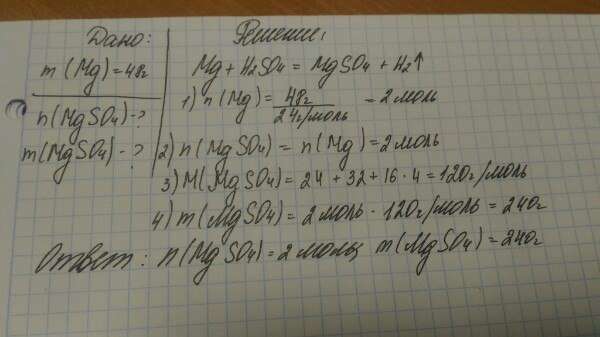 Дано:
m (Mg) = 48г
n (MgSO4) - ?
m (MgSO4) - ?
Решение:
Mg + H2SO4 = MgSO4 + H2↑
1) n (Mg) = 48г / 24г/моль = 2 моль
2) n (MgSO4) = n (Mg) = 2 моль
3) M (MgSO4) = 24 + 32 + 16 · 4 = 120г/моль
4) m (MgSO4) = 2 моль · 120г/моль = 240г
Ответ: n (MgSO4) = 2 моль; m (MgSO4) = 240г